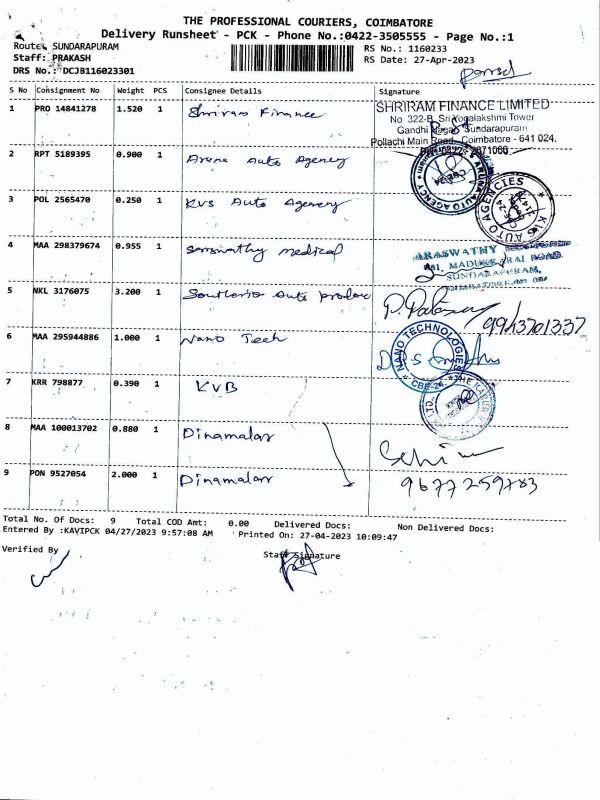 THE PROFESSIONAL COURIERS, COIMBATORE
Delivery Runsheet - PCK - Phone No.:0422-3505555 - Page No.:1
Route: SUNDARAPURAM
RS No.: 1160233
Staff: PRAKASH
RS Date: 27-Apr-2023
DRS No.: DCJB116023301
S No Consignment No Weight PCS Consignee Details Signature
1 PRO 14841278 1.520 1 Shriram Finance
SHRIRAM FINANCE LIMITED
No. 322-B, Sri Yogalakshmi Tower
Gandhi Nagar, Sundarapuram
Pollachi Main Road, Coimbatore - 641 024.
2 RPT 5189395 0.900 1 Aruna Auto Agency
3 POL 2565470 0.250 1 KVS Auto Agency
KVS AUTO AGENCIES
4 MAA 298379674 0.955 1 Saraswathy medical
ARASWATHY
MADUKKARAI ROAD
SUNDARAPURAM,
5 NKL 3176075 3.200 1 Southern Auto produc
9943701337
6 MAA 295944886 1.000 1 Nano Tech
NANO TECHNOLOGIES
CBE-24
7 KRR 798877 0.390 1 KVB
8 MAA 100013702 0.880 1 Dinamalar
9 PON 9527054 2.000 1 Dinamalar
9677259783
Total No. Of Docs: 9 Total COD Amt: 0.00 Delivered Docs: Non Delivered Docs:
Entered By :KAVIPCK 04/27/2023 9:57:08 AM Printed On: 27-04-2023 10:09:47
Verified By
Staff Signature